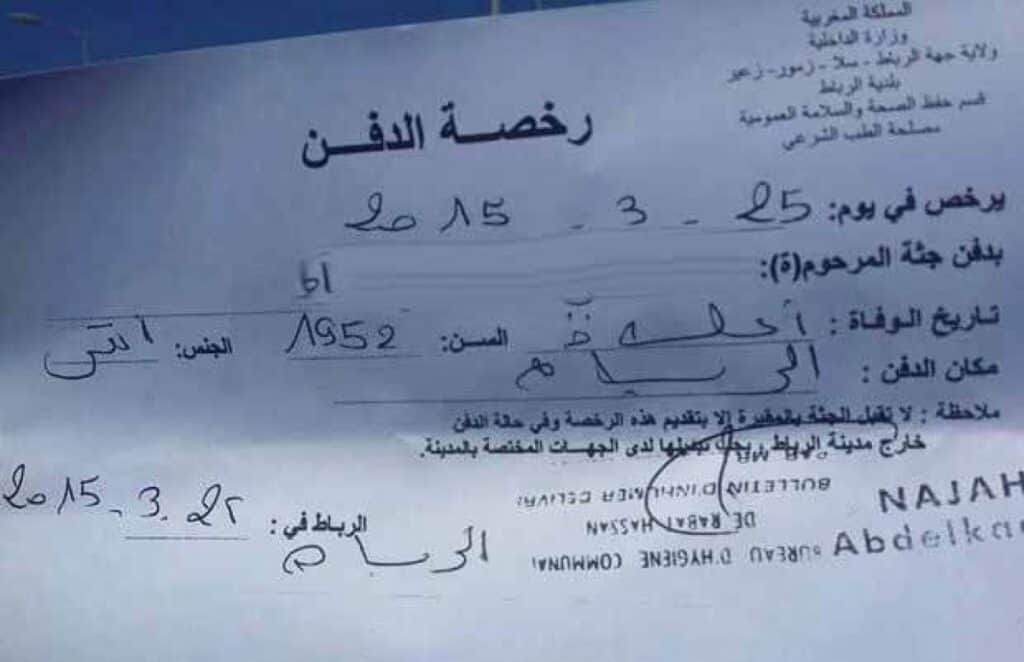 المملكة المغربية
وزارة الداخلية
ولاية جهة الرباط - سلا - زمور - زعير
بلدية الرباط
قسم حفظ الصحة والسلامة العمومية
مصلحة الطب الشرعي
رخصة الدفن
يرخص في يوم: 25 - 3 - 2015
بدفن جثة المرحوم(ة):
تاريخ الوفاة : السن: 1952 الجنس: أنثى
مكان الدفن :
ملاحظة : لا تقبل الجثة بالمقبرة إلا بتقديم هذه الرخصة وفي حالة الدفن
خارج مدينة الرباط، يجب تبديلها لدى الجهات المختصة بالمدينة.
الرباط في : 2015.3.25
NAJAH
Abdelka
BUREAU D'HYGIENE COMMUNAL
DE RABAT HASSAN
BULLETIN D'INHUMER DELIVRE
PAR MR